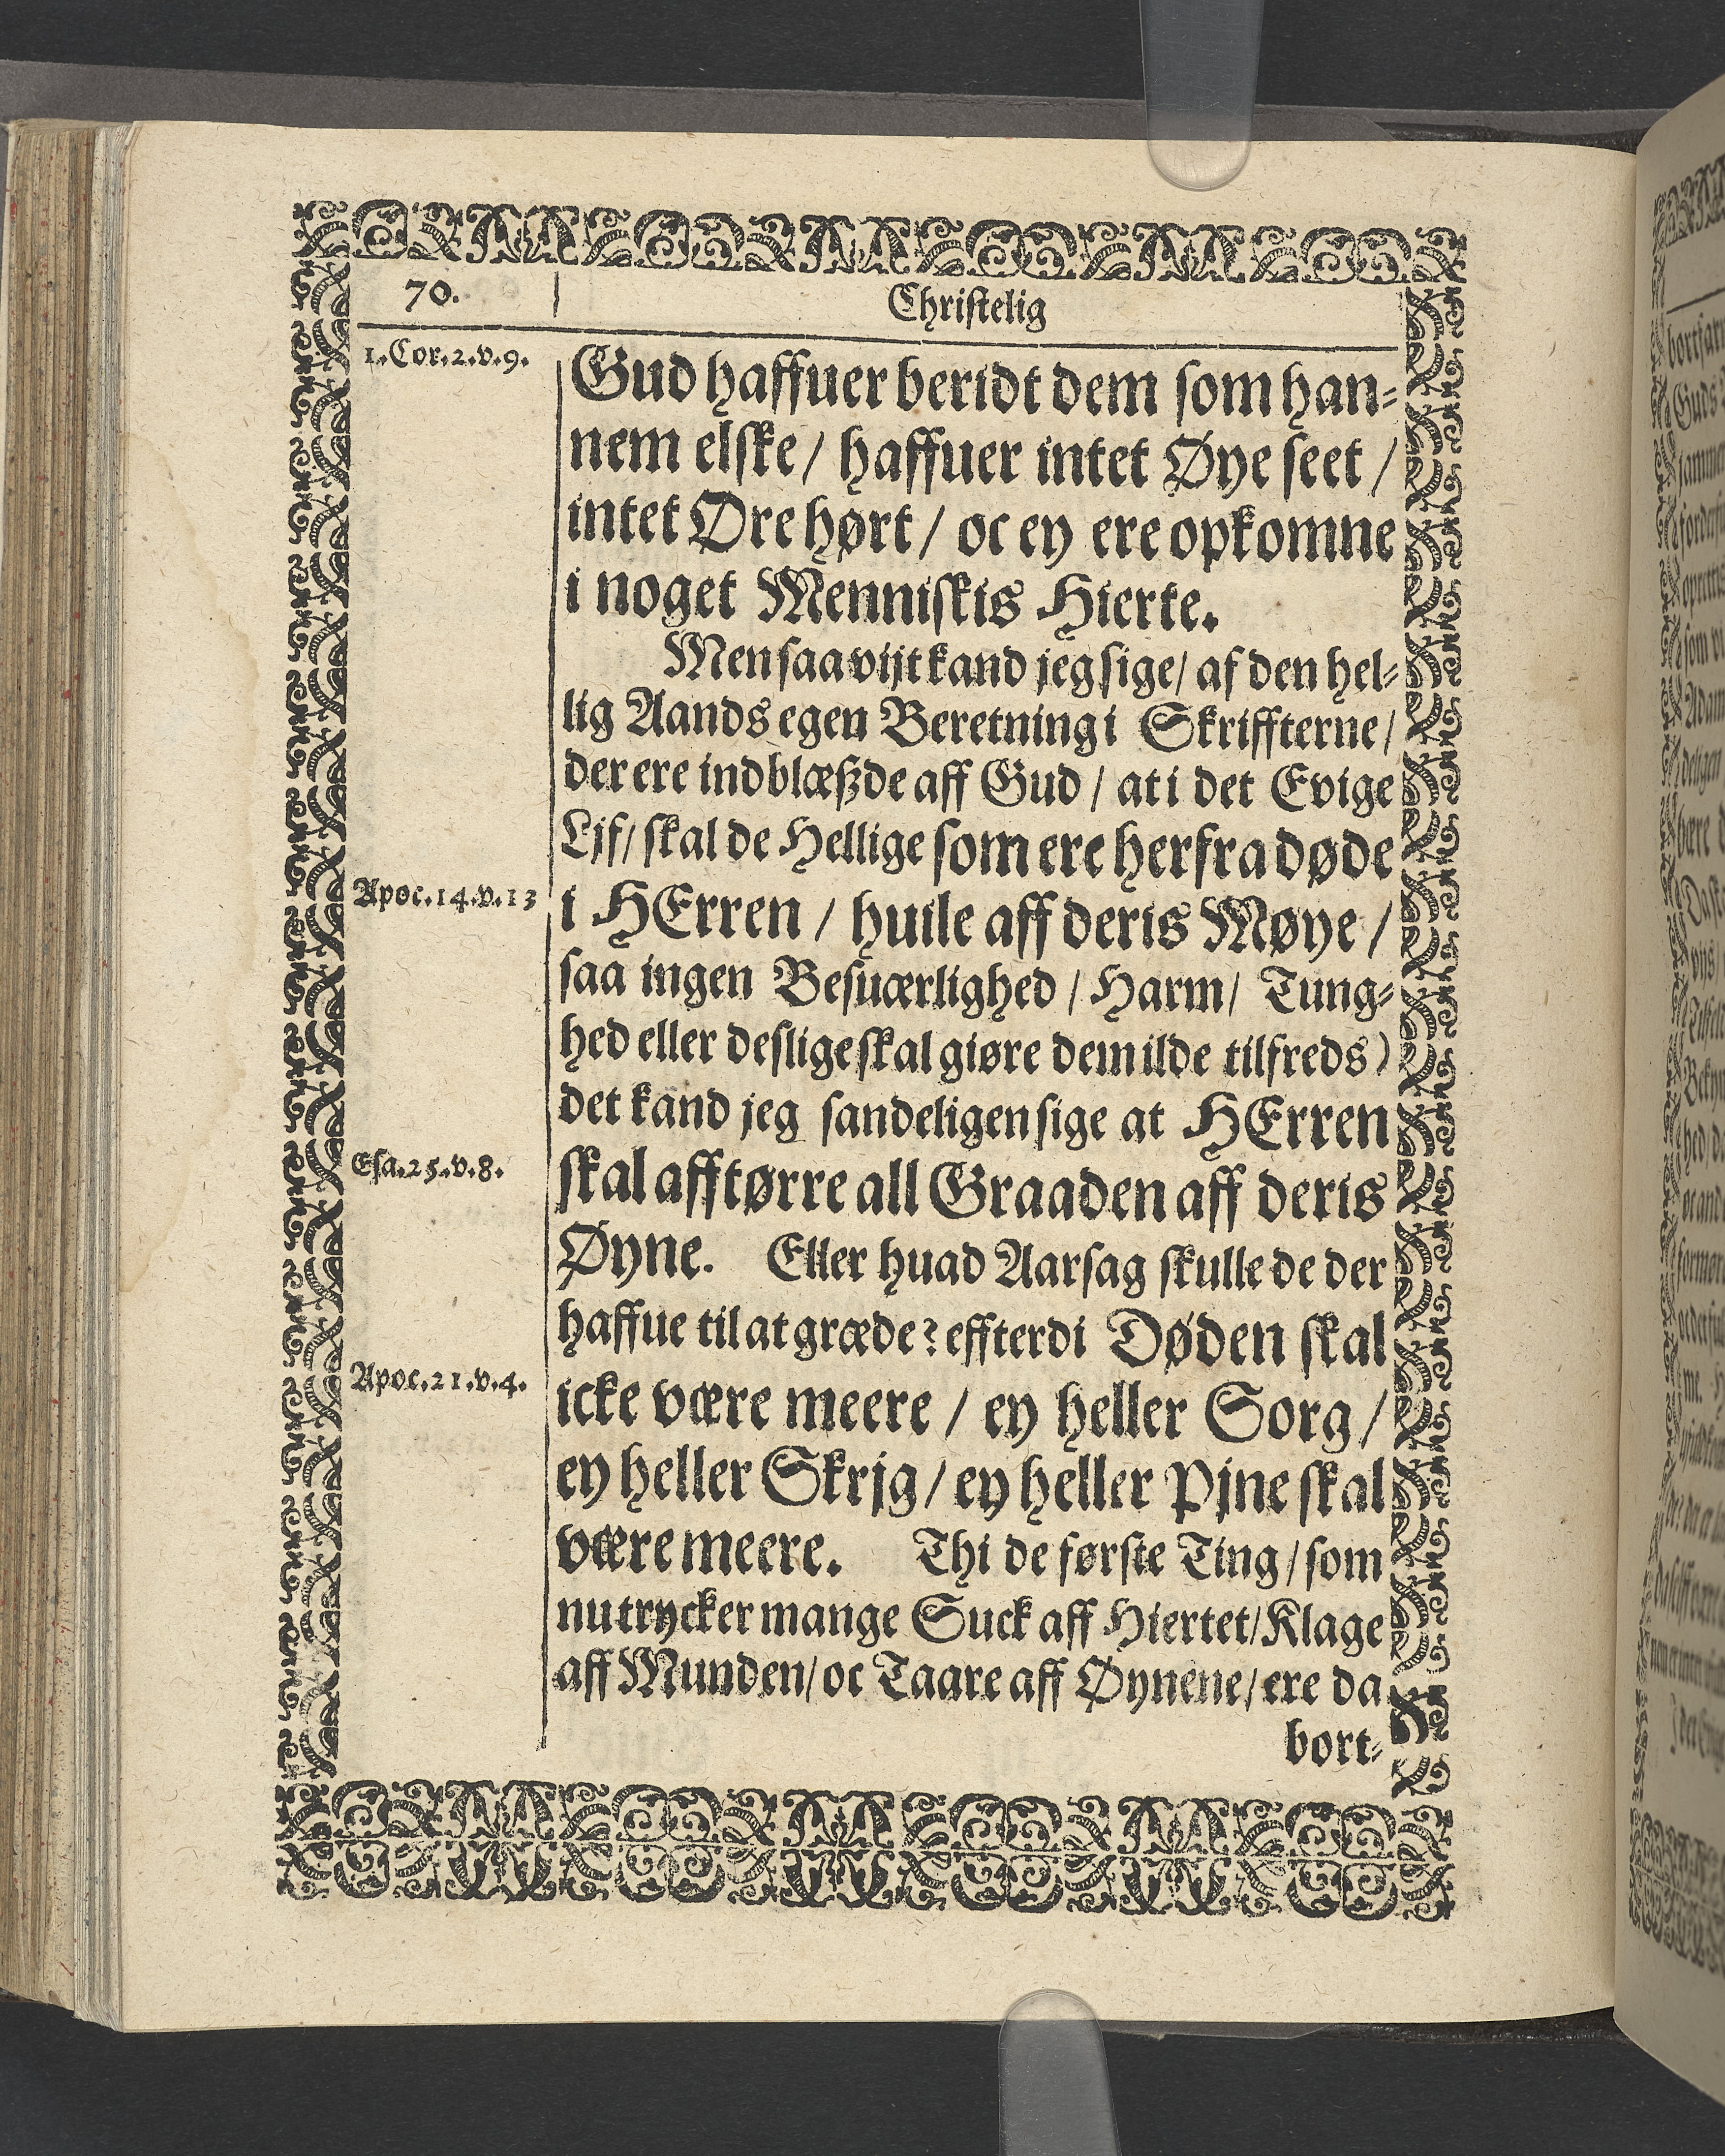 70.
Christelig
1. Cor. 2. v. 9.
Gud haffuer beridt dem som han-
nem elske / haffuer intet Øye seet /
intet Øre hørt / oc ey ere opkomne
i noget Menniskis Hierte.
Men saa vijt kand jeg sige / af den hel-
lig Aands egen Beretning i Skriffterne /
der ere indblæßde aff Gud / at i det Evige
Ljf / skal de Hellige som ere herfra døde
Apoc. 14. v. 13
i HErren / huile aff deris Møye /
saa ingen Besuærlighed / Harm / Tung-
hed eller deslige skal giøre dem ilde tilfreds)
det kand jeg sandeligen sige at HErren
Esa. 25. v. 8.
skal afftørre all Graaden aff deris
Øyne. Eller huad Aarsag skulle de der
haffue til at græde? effterdi Døden skal
Apoc. 21. v. 4.
icke være meere / ey heller Sorg /
ey heller Skrjg / ey heller Pjne skal
være meere. Thi de første Ting / som
nu trycker mange Suck aff Hiertet / Klage
aff Munden / oc Taare aff Øynene / ere da
bort-